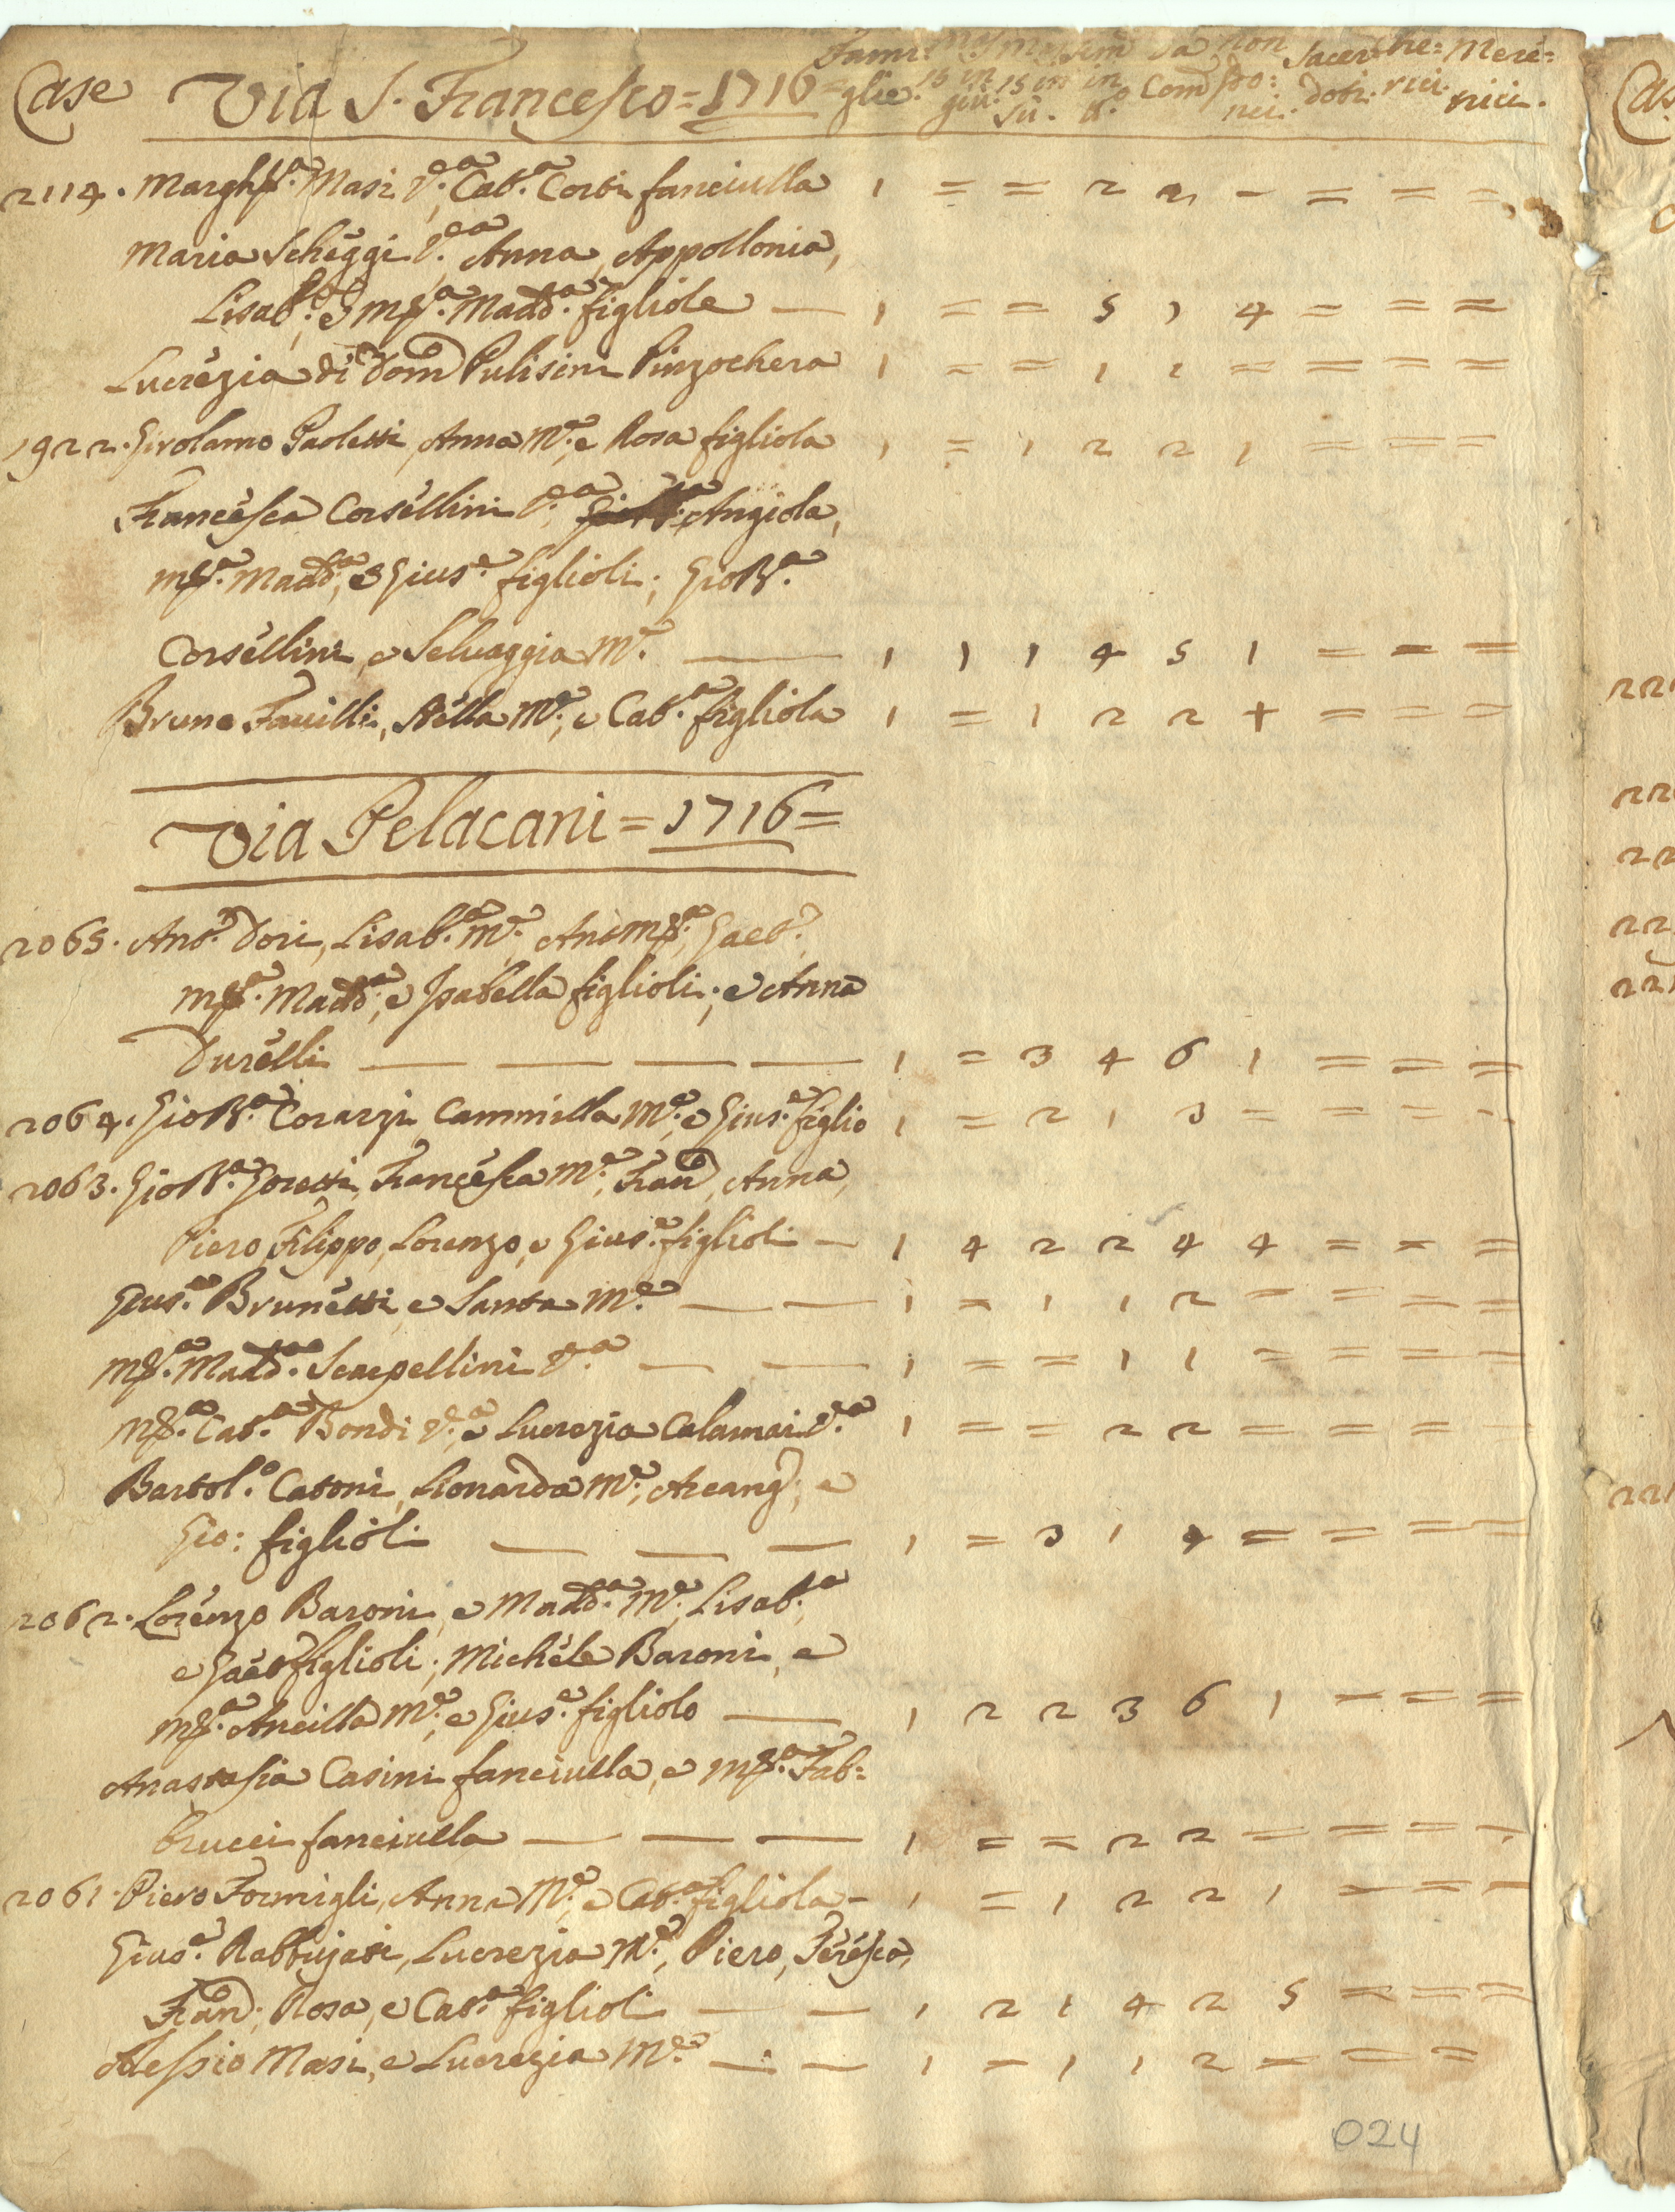 Case Via S. Francesco = 1716 = Fami= glie. Mas. 15 in giù. Mas. 15 in sù. Fem. in tt.º Da Com. non Com. Sacer= doti. He= rici. Mere= trici.
2114. Margh.ta Masi V.a, Cat.a Corti fanciulla 1 = = 2 2 - = = =
Maria Scheggi V.a Anna, Appollonia,
Lisab.a, e M.a Madd.a figliole — 1 = = 5 1 4 = = =
Lucrezia di Dom.co Pulisini Pinzochera 1 = = 1 1 = = = =
1922. Girolamo Paoletti, Anna M.e, e Rosa figliola 1 = 1 2 2 1 = = =
Francesca Corsellini V.a Angiola,
M.a Madd.a, e Gius.e figlioli; Gio B.a
Corsellini, e Selvaggia M.e — 1 1 1 4 5 1 = = =
Bruno Favilli, Stella M.e, e Cat.a figliola 1 = 1 2 2 + = = =
Via Pelacani = 1716 =
2065. Ant.o Dori, Lisab.a M.e, Ant.o M.a, Gaet.o
M.a Madd.a, e Isabella figlioli; e Anna
Durelli — — — — 1 = 3 4 6 1 = = =
2064. Gio B.a Corazzi Cammilla M.e, e Gius.e figlio 1 = 2 1 3 = = = -
2063. Gio B.a Goretti, Francesca M.e, Fran.co, Anna,
Piero, Filippo, Lorenzo, e Gius.e figlioli — 1 4 2 2 4 4 = = =
Gius.e Brunetti, e Santa M.e — — 1 = 1 1 2 = = = =
M.a Madd.a Scarpellini V.a — — 1 = = 1 1 = = = =
M.a Cat.a Bondi V.a, e Lucrezia Calamai V.a 1 = = 2 2 = = = -
Bartol.o Catoni, Lionarda M.e, Arcang.o, e
Gio: figlioli — — — 1 = 3 1 4 = = = =
2062. Lorenzo Baroni, e Madd.a M.e, Lisab.a,
e Gaet.o figlioli; Michele Baroni, e
M.a Ancilla M.e, e Gius.e figliolo — 1 2 2 3 6 1 = = =
Anastasia Casini fanciulla, e M.a Fab=
brucci fanciulla — — — 1 = = 2 2 = = = -
2061. Piero Formigli, Anna M.e, e Cat.a figliola - 1 = 1 2 2 1 = = -
Gius.e Rabbujati, Lucrezia M.e, Piero, Teresa,
Fran.co, Rosa, e Cat.a figlioli — — 1 2 1 4 2 5 = = =
Alessio Masi, e Lucrezia M.e — — 1 = 1 1 2 = = =
024